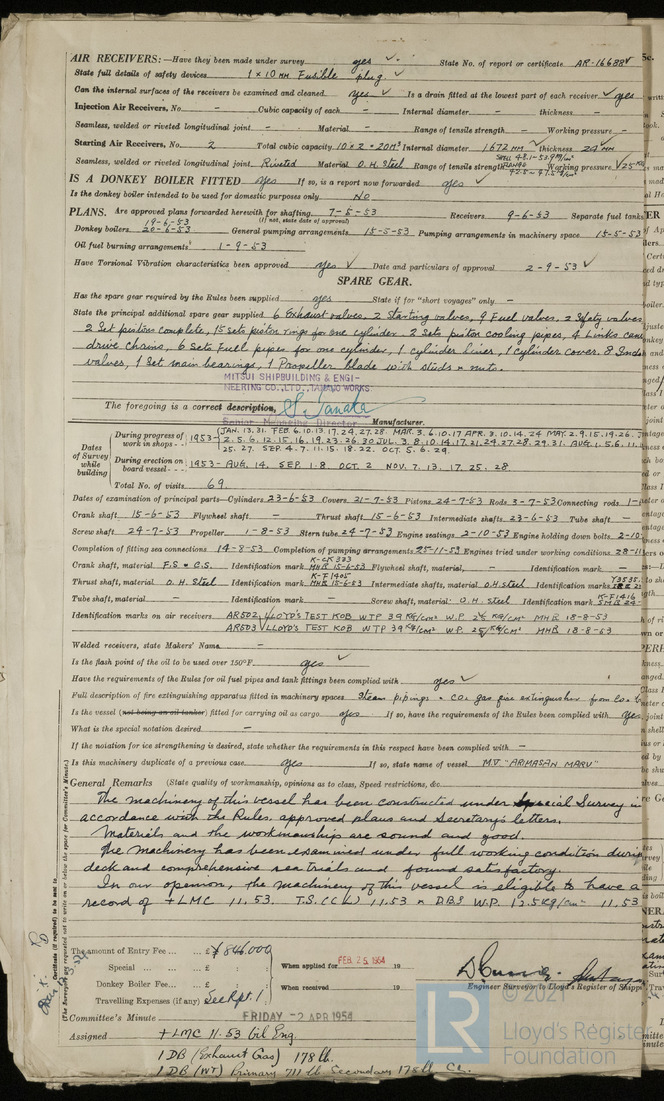 AIR RECEIVERS:—Have they been made under survey yes ✓ State No. of report or certificate AR-16688
State full details of safety devices 1 x 10 mm Fusible plug ✓
Can the internal surfaces of the receivers be examined and cleaned yes ✓ Is a drain fitted at the lowest part of each receiver ✓ yes
Injection Air Receivers, No. – Cubic capacity of each – Internal diameter – thickness –
Seamless, welded or riveted longitudinal joint – Material – Range of tensile strength – Working pressure –
Starting Air Receivers, No. 2 Total cubic capacity 10 x 2 = 20M³ Internal diameter 1672 mm ✓ thickness 24 mm
Seamless, welded or riveted longitudinal joint Riveted Material O.H. Steel Range of tensile strength Working pressure ✓ 25
IS A DONKEY BOILER FITTED yes If so, is a report now forwarded yes ✓
Is the donkey boiler intended to be used for domestic purposes only No
PLANS. Are approved plans forwarded herewith for shafting 7-5-53 Receivers 9-6-53 Separate fuel tanks
(If not, state date of approval)
19-6-53
Donkey boilers 20-6-53 General pumping arrangements 15-5-53 Pumping arrangements in machinery space 15-5-53
Oil fuel burning arrangements 1-9-53
Have Torsional Vibration characteristics been approved yes ✓ Date and particulars of approval 2-9-53 ✓
SPARE GEAR.
Has the spare gear required by the Rules been supplied yes State if for "short voyages" only –
State the principal additional spare gear supplied 6 Exhaust valves, 2 Starting valves, 9 Fuel valves, 2 Safety valves
2 Set pistons complete, 15 sets piston rings for one cylinder, 2 Sets piston cooling pipes, 4 Links cam
drive chains, 6 Sets Fuel pipes for one cylinder, 1 cylinder liner, 1 cylinder cover, 8
valves, 1 Set main bearings, 1 Propeller blade with studs & nuts.
MITSUI SHIPBUILDING & ENGI-
NEERING CO., LTD., TAMANO WORKS
The foregoing is a correct description, S. Tanaka
Senior Managing Director Manufacturer.
Dates of Survey while building
During progress of work in shops - - 1953- JAN. 13. 31. FEB. 6. 10. 13. 17. 24. 27. 28. MAR. 3. 6. 10. 17 APR. 3. 10. 14. 24 MAY. 2. 9. 15. 19. 26.
2. 5. 6. 12. 15. 16. 19. 23. 26. 30 JUL. 3. 8. 10. 14. 17. 21. 24. 27. 28. 29. 31. AUG. 1. 5. 6. 11.
25. 27. SEP. 4. 7. 11. 15. 18. 22. OCT. 5. 6. 29.
During erection on board vessel - - - 1953- AUG. 14. SEP. 1. 8. OCT. 2 NOV. 7. 13. 17. 25. 28
Total No. of visits 69.
Dates of examination of principal parts—Cylinders 23-6-53 Covers 21-7-53 Pistons 24-7-53 Rods 3-7-53 Connecting rods
Crank shaft 15-6-53 Flywheel shaft – Thrust shaft 15-6-53 Intermediate shafts 23-6-53 Tube shaft –
Screw shaft 24-7-53 Propeller 1-8-53 Stern tube 24-7-53 Engine seatings 2-10-53 Engine holding down bolts 2-10
Completion of fitting sea connections 14-8-53 Completion of pumping arrangements 25-11-53 Engines tried under working conditions 28-11
Crank shaft, material F.S. & C.S. Identification mark K-CK 373 MHB 15-6-53 Flywheel shaft, material – Identification mark –
Thrust shaft, material O.H. Steel Identification mark K-F1405 MHB 15-6-53 Intermediate shafts, material O.H. steel Identification marks
Tube shaft, material – Identification mark – Screw shaft, material O.H. Steel Identification mark K-F1416
Identification marks on air receivers AR502 LLOYD'S TEST KOB WTP 39 KG/cm² W.P. 25 KG/cm² MHB 18-8-53
AR503 LLOYD'S TEST KOB WTP 39 KG/cm² W.P. 25 KG/cm² MHB 18-8-53
Welded receivers, state Makers' Name –
Is the flash point of the oil to be used over 150°F. yes ✓
Have the requirements of the Rules for oil fuel pipes and tank fittings been complied with yes ✓
Full description of fire extinguishing apparatus fitted in machinery spaces Steam pipings & CO₂ gas fire extinguisher from
Is the vessel (not being an oil tanker) fitted for carrying oil as cargo yes If so, have the requirements of the Rules been complied with yes
What is the special notation desired –
If the notation for ice strengthening is desired, state whether the requirements in this respect have been complied with –
Is this machinery duplicate of a previous case yes If so, state name of vessel M.V. "ARIMASAN MARU"
General Remarks (State quality of workmanship, opinions as to class, Speed restrictions, &c.
The machinery of this vessel has been constructed under Special Survey in
accordance with the Rules, approved plans and Secretary's letters.
Materials and the workmanships are sound and good.
The machinery has been examined under full working condition during
deck and comprehensive sea trials and found satisfactory.
In our openion, the machinery of this vessel is eligible to have a
record of +LMC 11.53. T.S.(CL) 11.53 & D.B.S W.P. 12.5 KG/cm² 11.53
The amount of Entry Fee ... ... £ ¥846,000
Special ... ... £ When applied for FEB. 25. 1954 19
Donkey Boiler Fee... ... £ When received 19
Travelling Expenses (if any) See Rpt. 1
Engineer Surveyor to Lloyd's Register of Shipping
Committee's Minute FRIDAY -2 APR 1954
Assigned +LMC 11.53 Oil Eng.
1 DB (Exhaust Gas) 178 lb.
1 DB (WT) Primary 711 lb Secondary 178 lb CL.
© 2021
LR
Lloyd's Register
Foundation